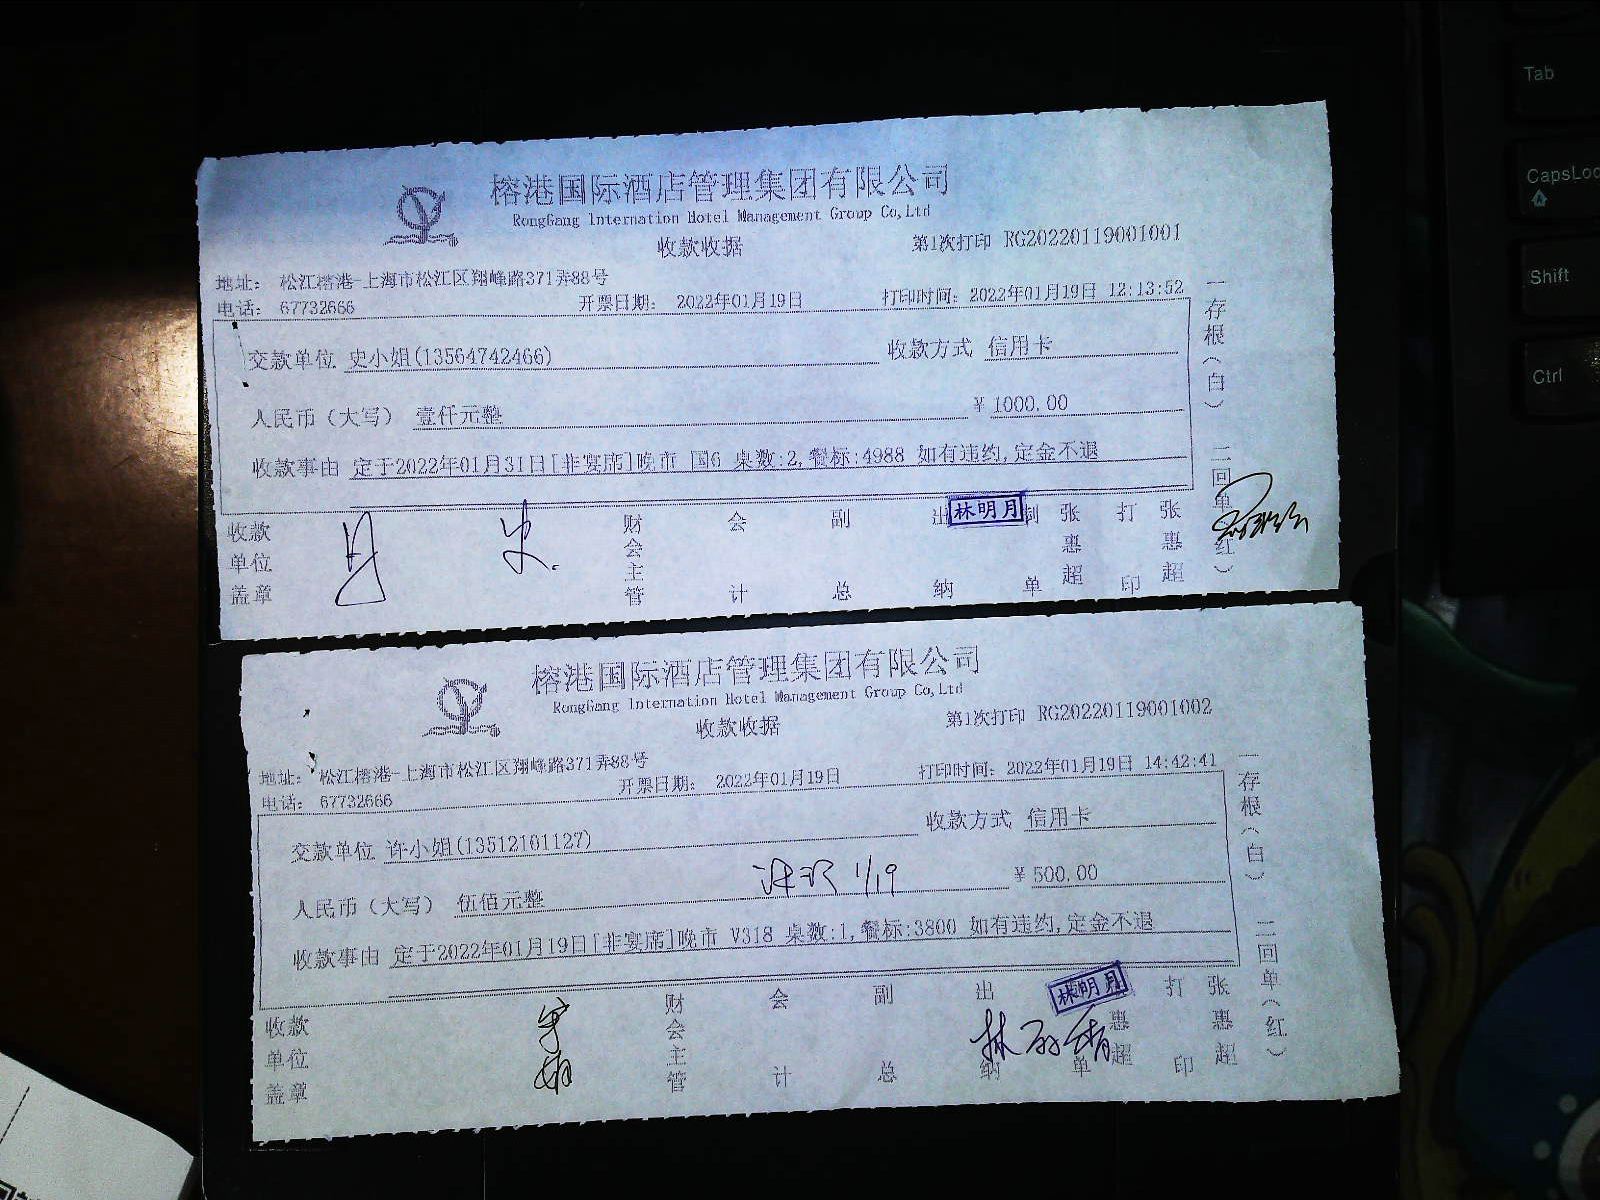 榕港国际酒店管理集团有限公司
RongGang Internation Hotel Management Group Co,Ltd
收款收据
第1次打印 RG20220119001001
地址： 松江榕港-上海市松江区翔峰路371弄88号
电话： 67732666
开票日期： 2022年01月19日
打印时间：2022年01月19日 12:13:52
交款单位 史小姐(13564742466)
收款方式 信用卡
人民币（大写） 壹仟元整
￥ 1000.00
收款事由 定于2022年01月31日[非宴席]晚市 国6 桌数:2,餐标:4988 如有违约,定金不退
收款单位盖章
财会主管
会计
副总
出纳
林明月
制单
张惠超
打印
张惠超
一存根（白） 二回单（红）
榕港国际酒店管理集团有限公司
RongGang Internation Hotel Management Group Co,Ltd
收款收据
第1次打印 RG20220119001002
地址： 松江榕港-上海市松江区翔峰路371弄88号
电话： 67732666
开票日期： 2022年01月19日
打印时间：2022年01月19日 14:42:41
交款单位 许小姐(13512161127)
收款方式 信用卡
人民币（大写） 伍佰元整
1/19
￥ 500.00
收款事由 定于2022年01月19日[非宴席]晚市 V318 桌数:1,餐标:3800 如有违约,定金不退
收款单位盖章
财会主管
会计
副总
出纳
林明月
单
惠超
打印
张惠超
一存根（白） 二回单（红）
Tab
CapsLoc
Shift
Ctrl